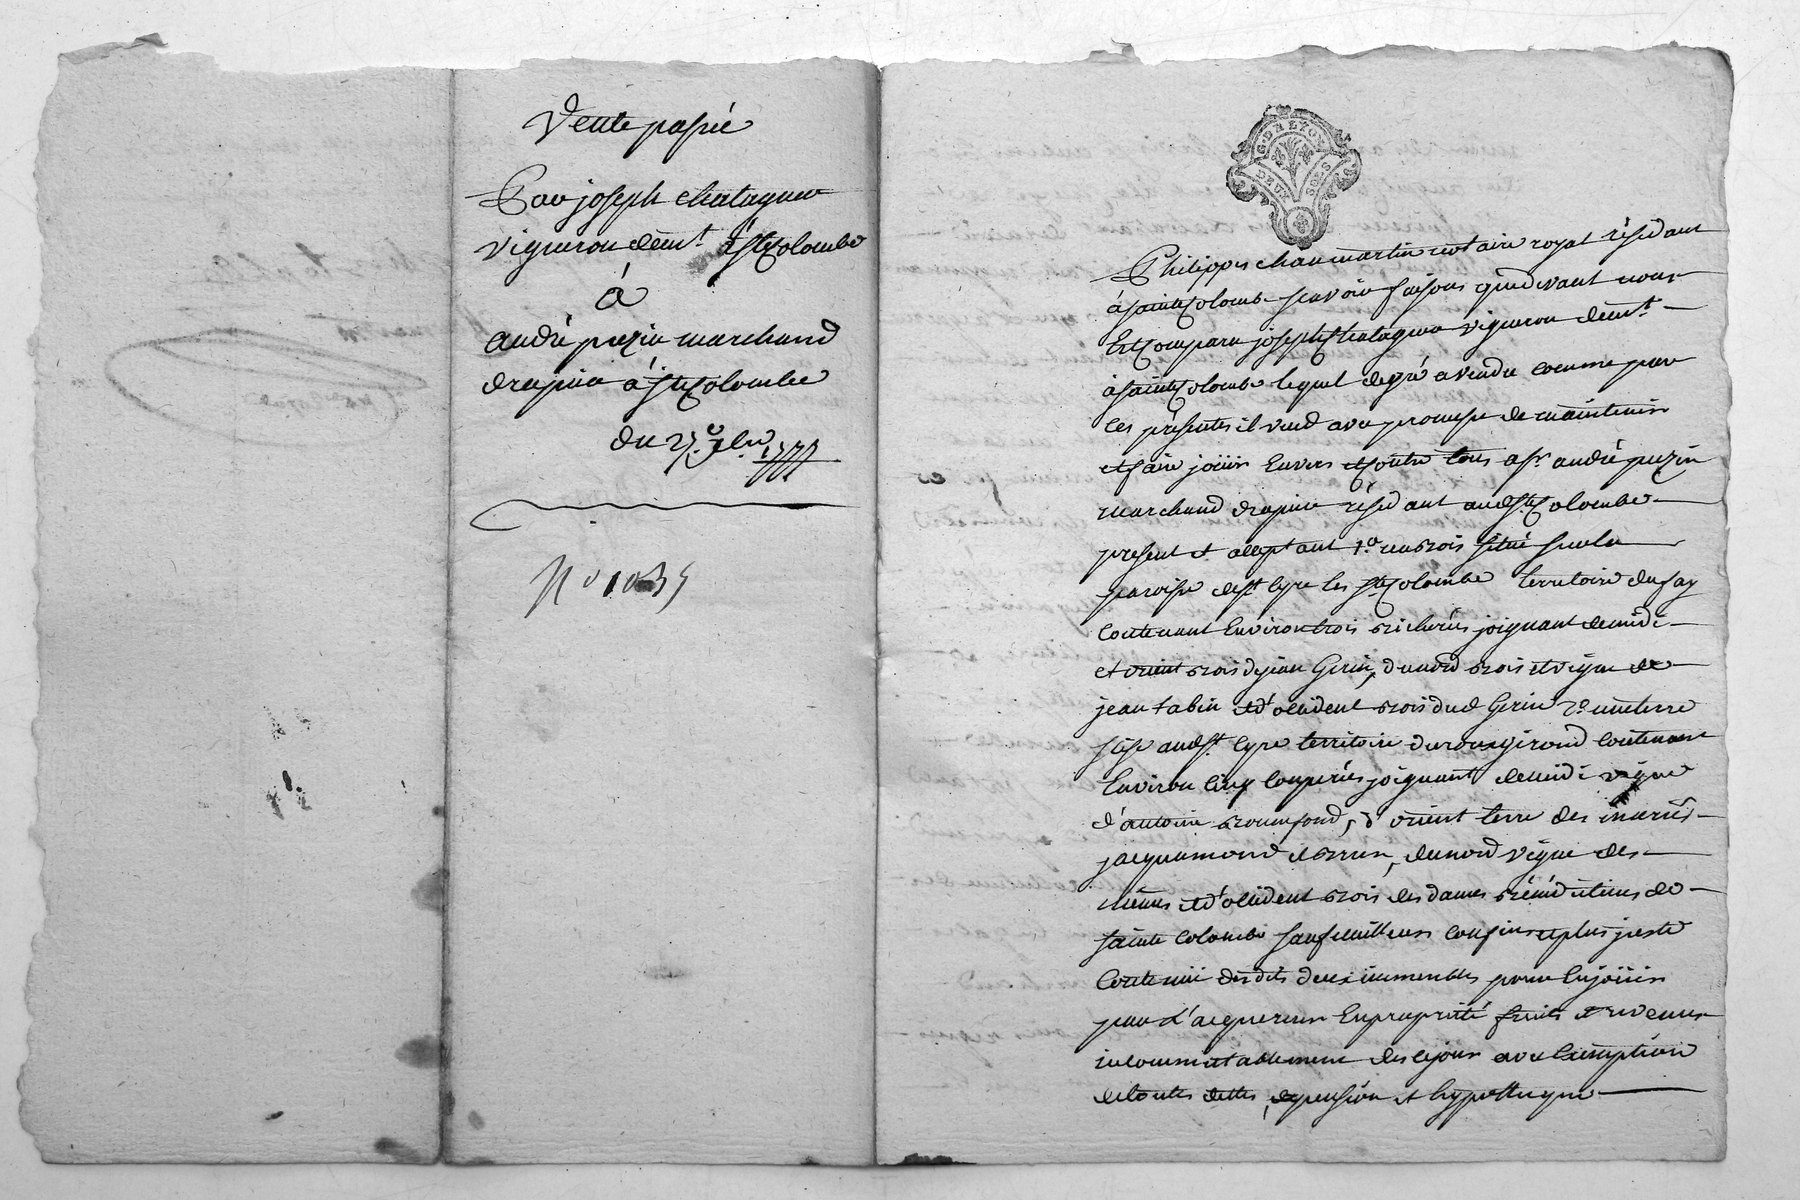 Vente passée
Par joseph chatagner
vigneron demt à Ste Colombe
à
andré pezin marchand
drapier à Ste Colombe
du 27e 7bre 1777
No 1035
G. DE LYON
DEUX SOLS
Philippes chaumartin notaire royal résidant
à sainte Colombe scavoir faisons que devant nous
Est Comparu joseph Chatagner vigneron demt
à sainte Colombe lequel de gré a vendu comme par
ces présentes il vend avec promesse de maintenir
et faire joüir Envers et Contre tous a sr andré pezin
marchand drapier résidant aud Ste Colombe
present et aceptant 1o un bois situé sur la
paroisse de st Cyre les Ste Colombe territoire du fay
Contenant Environ trois bicherées joignant de midi
et orient bois de jean Gerin, du nord bois et vigne de
jean tabin et d'occident bois dud Gerin 2o une terre
size aud st Cyre territoire du Contenant
Environ Cinq Couperées joignant de midi vigne
d'antoine bonnefond, d'orient terre des mariés
jacquemond et brun, du nord vigne des
mêmes et d'occident bois des dames bénédictines de
sainte Colombe sauf meilleurs confins et plus juste
Contenüe desdits deux immeubles pour En joüir
par L'acquereur En propriété fruits et revenus
incommutablement des ce jour avec Exemption
de toutes dettes, de pension et hypotheque